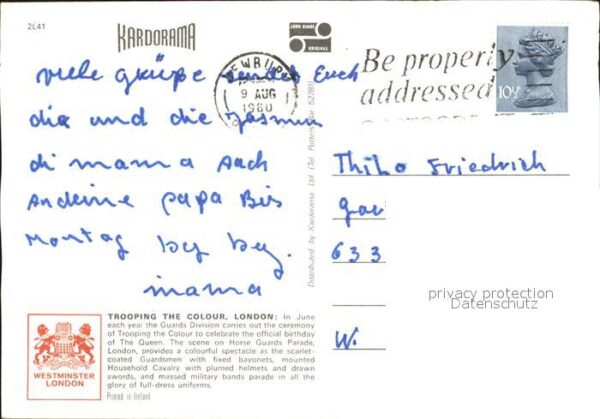 2L41
KARDORAMA
NEWBURY
9 AUG
1980
Be properly
addressed
10½P
viele grüße sendet Euch
dia und die Jasmin
di mama Auch
An deine papa Bis
Montag bey bey.
mama
Thilo Friedrich
633
W.
privacy protection
Datenschutz
Distributed by Kardorama Ltd (Tel Potters Bar
TROOPING THE COLOUR, LONDON: In June
each year the Guards Division carries out the ceremony
of Trooping the Colour to celebrate the official birthday
of The Queen. The scene on Horse Guards Parade,
London, provides a colourful spectacle as the scarlet-
coated Guardsmen with fixed bayonets, mounted
Household Cavalry with plumed helmets and drawn
swords, and massed military bands parade in all the
glory of full-dress uniforms.
Printed in Ireland
WESTMINSTER
LONDON